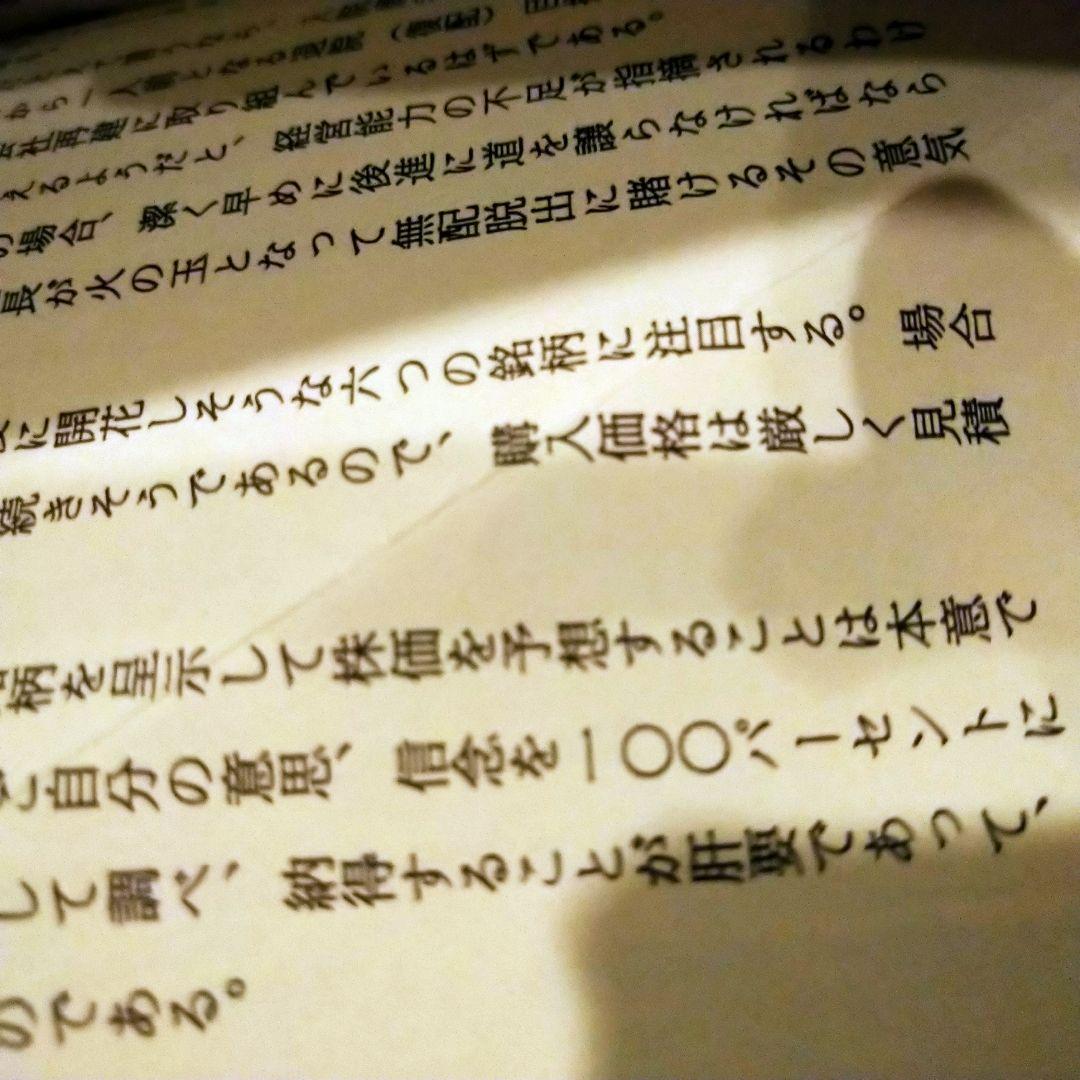 から一人前となる
会社再建に取り組んでいるはずである。
えるようだと、経営能力の不足が指摘されるわけ
の場合、潔く早めに後進に道を譲らなければなら
長が火の玉となって無配脱出に賭けるその意気
に開花しそうな六つの銘柄に注目する。場合
続きそうであるので、購入価格は厳しく見積
柄を呈示して株価を予想することは本意で
自分の意思、信念を一〇〇パーセントに
して調べ、納得することが肝要であって、
のである。